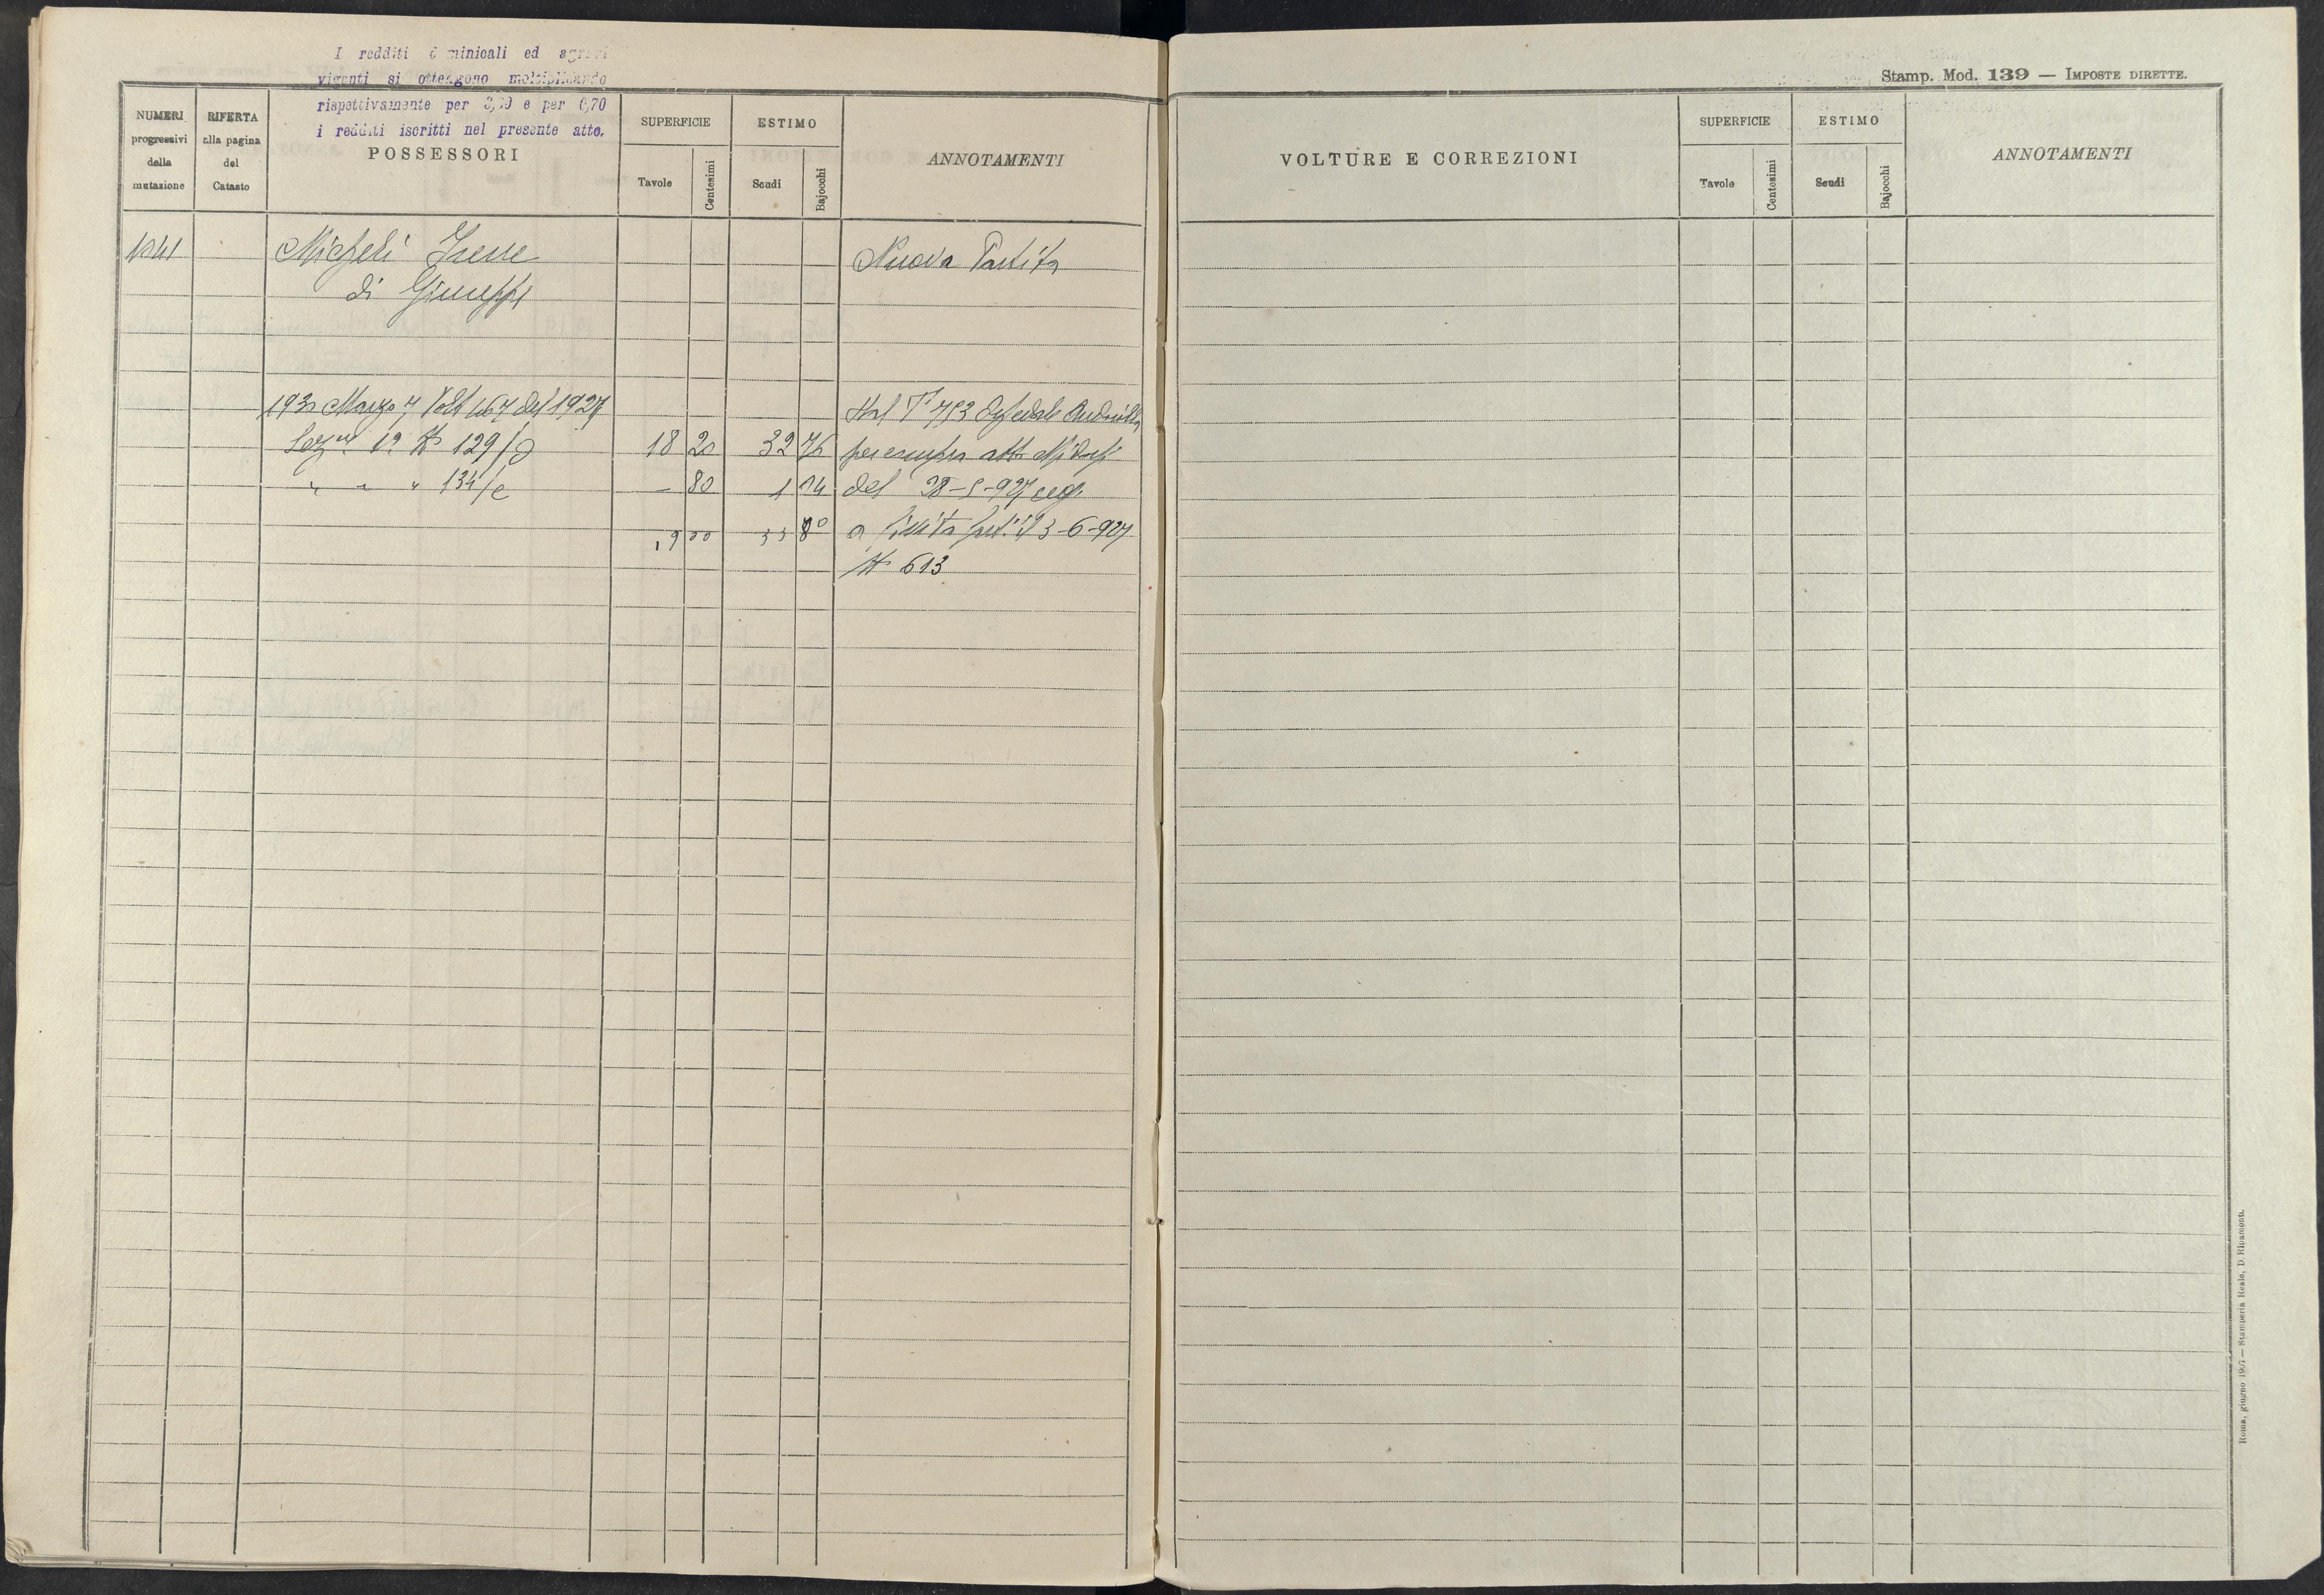 I redditi dominicali ed agrari
vigenti si ottengono moltiplicando
rispettivamente per e per 0,70
i redditi iscritti nel presente atto.
NUMERI
progressivi
della
mutazione
RIFERTA
alla pagina
del
Catasto
POSSESSORI
SUPERFICIE
Tavole
Centesimi
ESTIMO
Scudi
Bajocchi
ANNOTAMENTI
1041
Micheli Irene
Nuova Partita
di Giuseppe
193 Marzo 7 Volt 167 del 1927
Dal P 753 Andreola
Sez 129/d 18 20 32 76 per compra atto
" " " 134/e - 80 1 04 del 28-5-927 reg.
19 00 33 80 a il 3-6-927
N 613
Stamp. Mod. 139 — IMPOSTE DIRETTE.
VOLTURE E CORREZIONI
SUPERFICIE
Tavole
Centesimi
ESTIMO
Scudi
Bajocchi
ANNOTAMENTI
Roma, giugno — Stamperia Reale, D. Ripamonti.